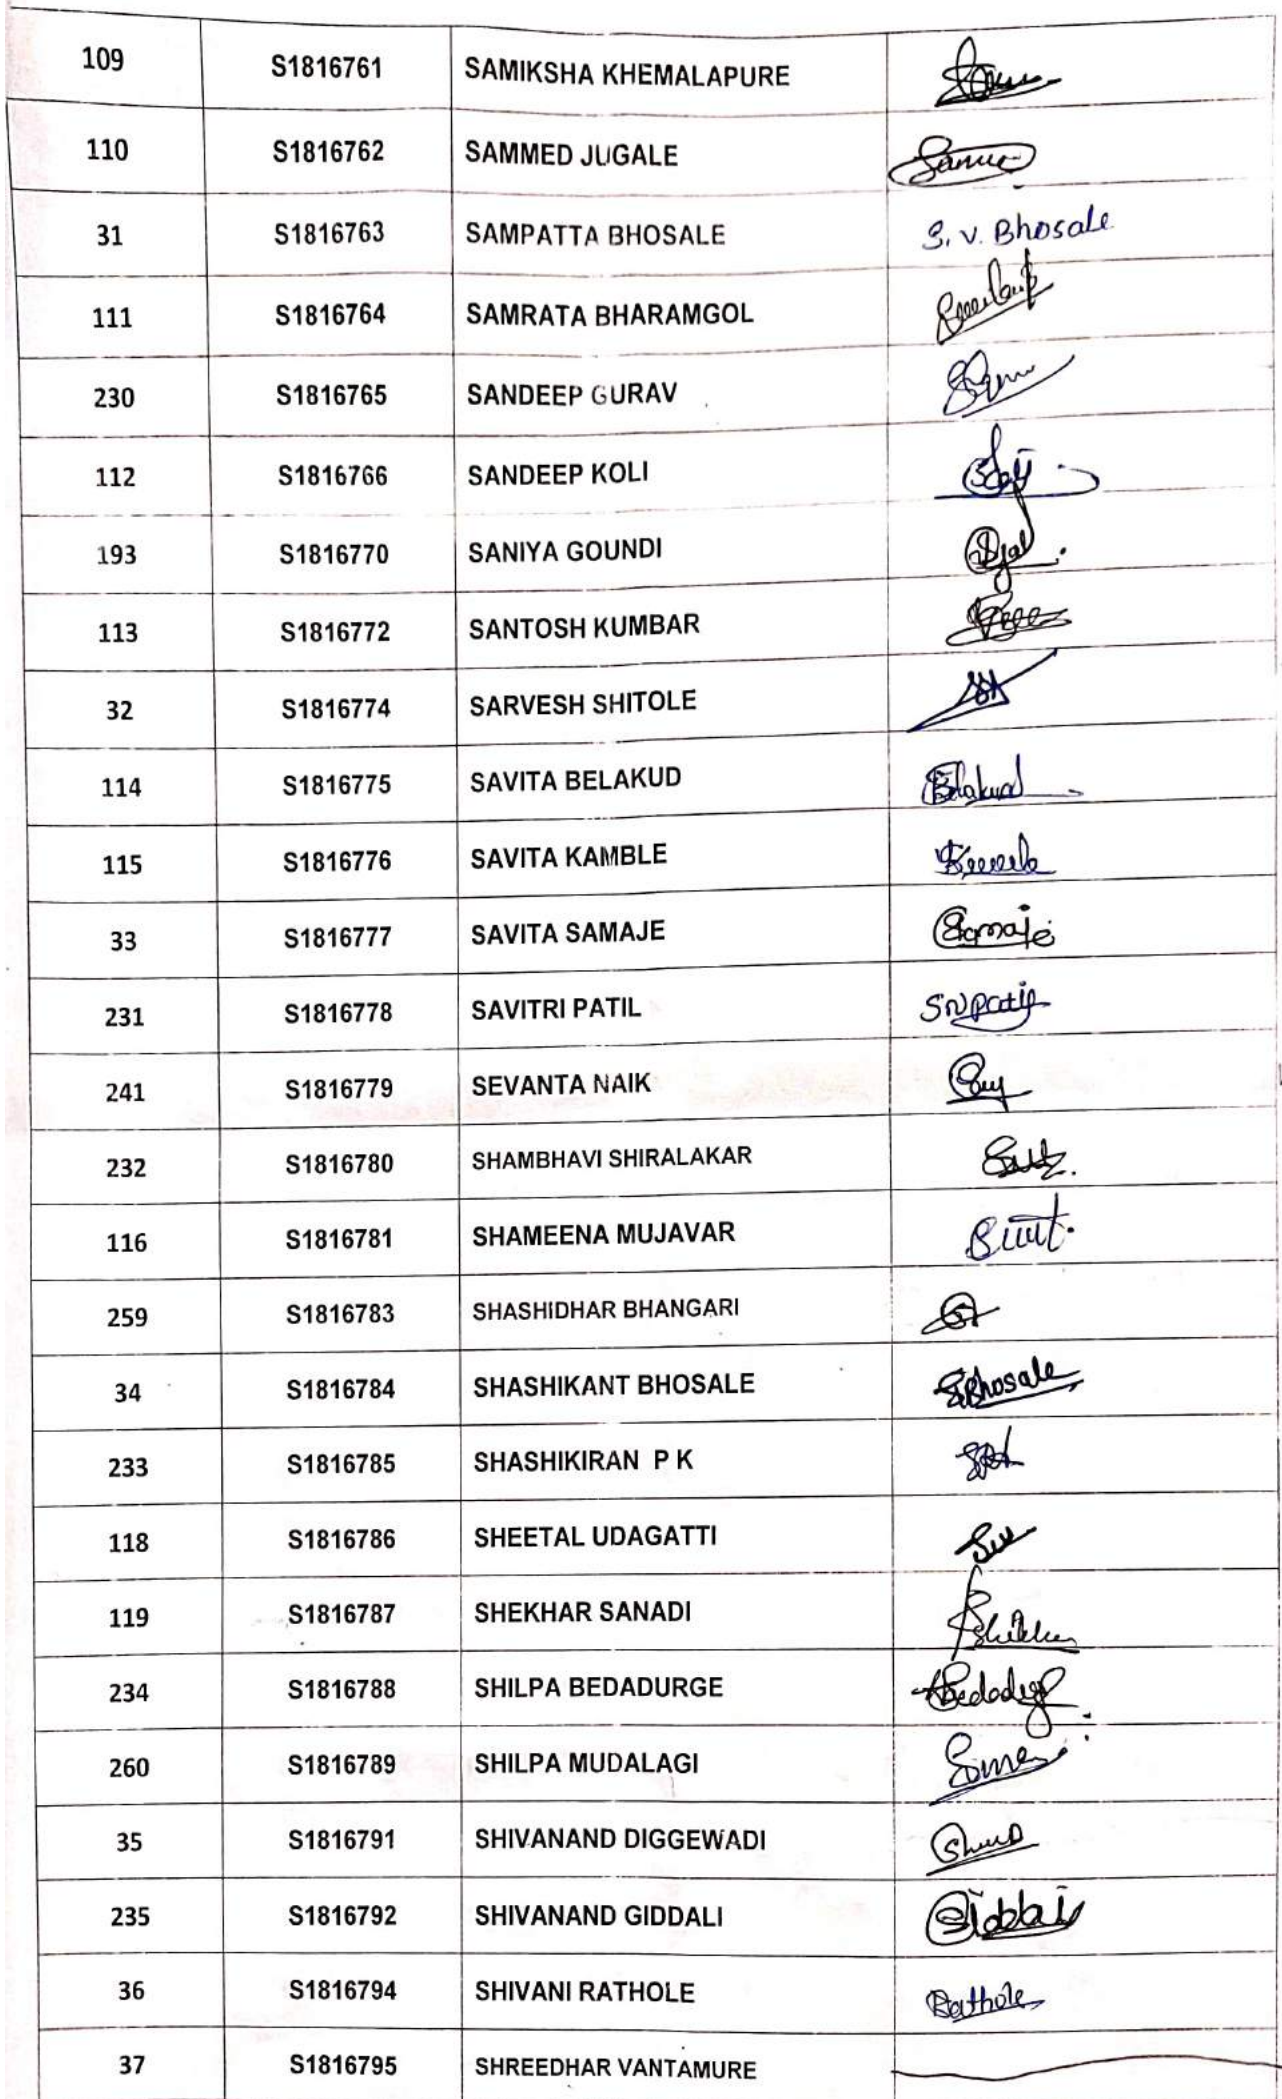 109 S1816761 SAMIKSHA KHEMALAPURE
110 S1816762 SAMMED JUGALE
31 S1816763 SAMPATTA BHOSALE S. V. Bhosale
111 S1816764 SAMRATA BHARAMGOL
230 S1816765 SANDEEP GURAV
112 S1816766 SANDEEP KOLI
193 S1816770 SANIYA GOUNDI
113 S1816772 SANTOSH KUMBAR
32 S1816774 SARVESH SHITOLE
114 S1816775 SAVITA BELAKUD Belakud
115 S1816776 SAVITA KAMBLE
33 S1816777 SAVITA SAMAJE Samaje
231 S1816778 SAVITRI PATIL SNPatil
241 S1816779 SEVANTA NAIK
232 S1816780 SHAMBHAVI SHIRALAKAR
116 S1816781 SHAMEENA MUJAVAR
259 S1816783 SHASHIDHAR BHANGARI
34 S1816784 SHASHIKANT BHOSALE SBhosale
233 S1816785 SHASHIKIRAN P K
118 S1816786 SHEETAL UDAGATTI
119 S1816787 SHEKHAR SANADI
234 S1816788 SHILPA BEDADURGE
260 S1816789 SHILPA MUDALAGI
35 S1816791 SHIVANAND DIGGEWADI
235 S1816792 SHIVANAND GIDDALI
36 S1816794 SHIVANI RATHOLE Rathole
37 S1816795 SHREEDHAR VANTAMURE